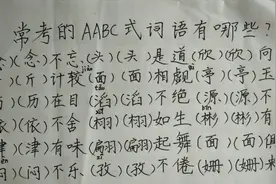 常考的AABC式词语有哪些?
)(念)不忘(头)(头)是道(欣)(欣)向
)(斤)计较(面)(面)相觑(亭)(亭)玉
)(历)在目(滔)(滔)不绝(源)(源)不
(依)不舍(栩)(栩)如生(彬)(彬)有
(津)有味(翩)(翩)起舞(面)(面)俱
(闷)不乐(孜)(孜)不倦(姗)(姗)来